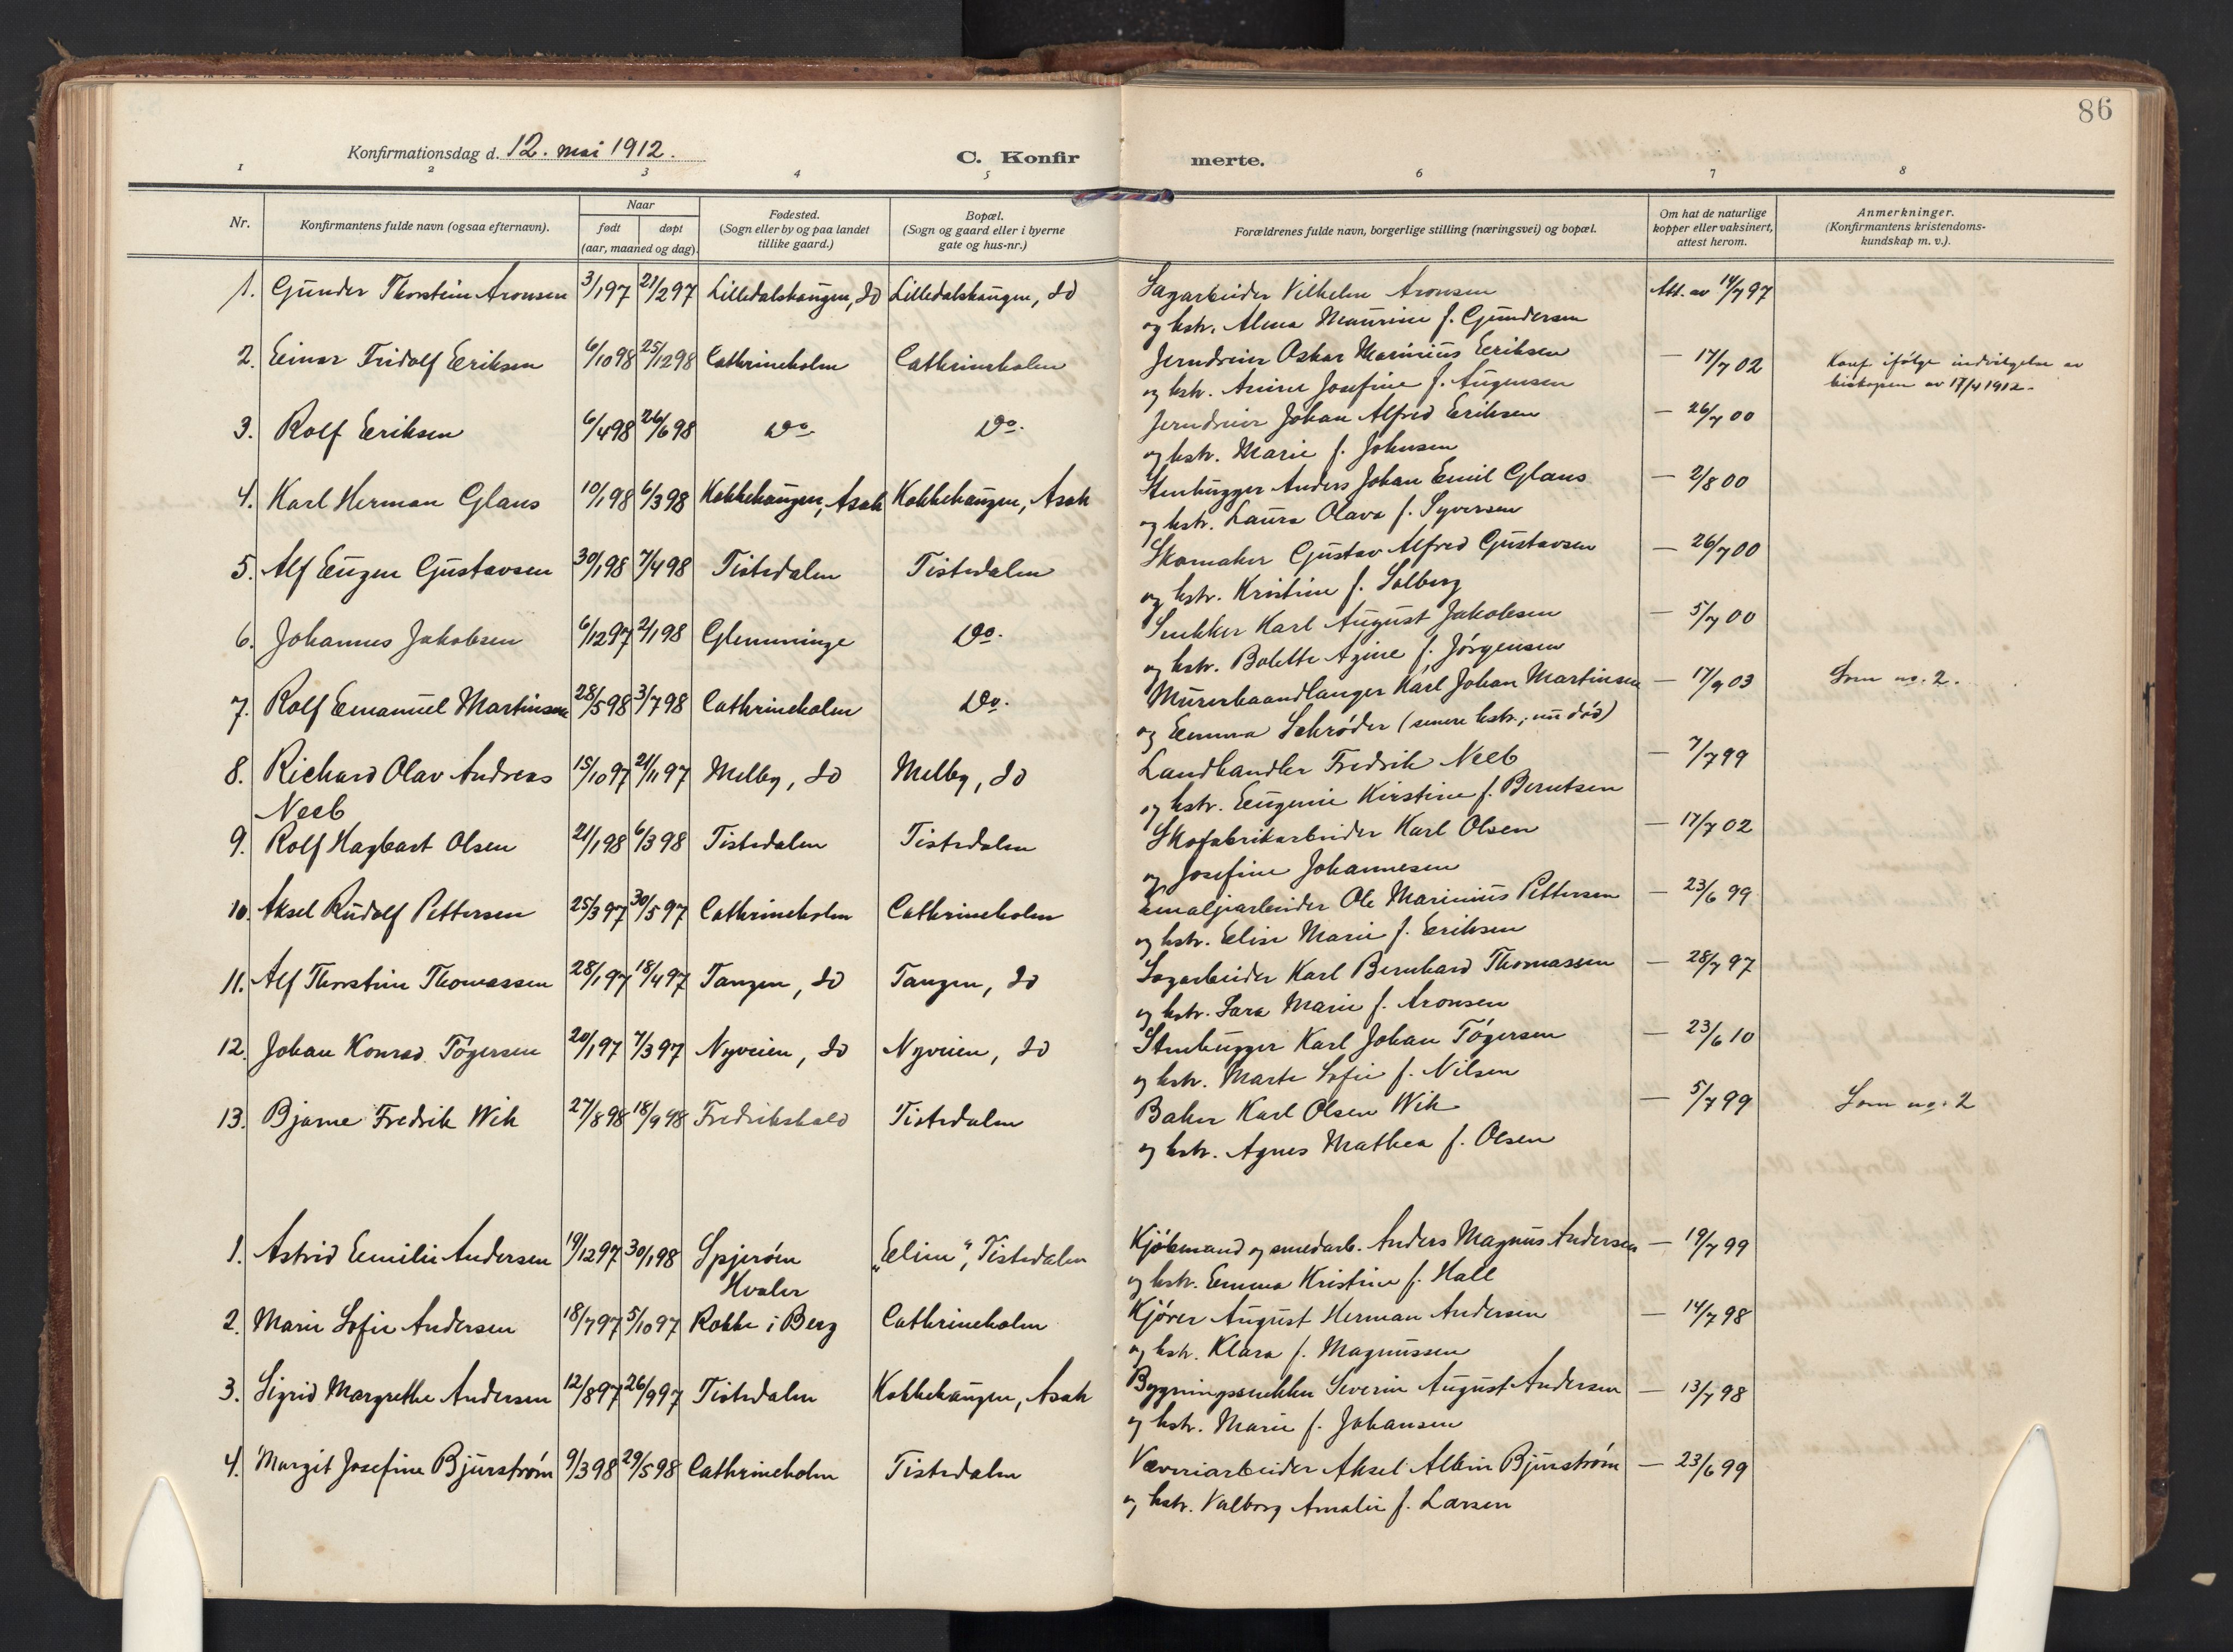 86
Konfirmationsdag d. 12. mai 1912.
C. Konfir
merte.
1 2 3 4 5 6 7 8
Nr.
Konfirmantens fulde navn (ogsaa efternavn).
Naar
født døpt
(aar, maaned og dag).
Fødested.
(Sogn eller by og paa landet
tillike gaard.)
Bopæl.
(Sogn og gaard eller i byerne
gate og hus-nr.)
Forældrenes fulde navn, borgerlige stilling (næringsvei) og bopæl.
Om hat de naturlige
kopper eller vaksinert,
attest herom.
Anmerkninger.
(Konfirmantens kristendoms-
kundskap m. v.).
1. Gunder Thorstein Aronsen 3/1 97 21/2 97 Lilledalshaugen, Id Lilledalshaugen, Id Sagarbeider Vilhelm Aronsen Att. av 14/7 97
og hstr. Alma Maurine f. Gundersen
2. Einar Fridolf Eriksen 6/10 98 25/12 98 Cathrineholm Cathrineholm Jerndreier Oskar Marinius Eriksen — 17/7 02 Konf. ifølge indvilgelse av
og hstr. Anine Josefine f. Augensen biskopen av 17/4 1912.
3. Rolf Eriksen 6/4 98 26/6 98 Do. Do. Jerndreier Johan Alfred Eriksen — 26/7 00
og hstr. Marie f. Johnsen
4. Karl Herman Glans 10/1 98 6/3 98 Kokkehaugen, Asak Kokkehaugen, Asak Stenhugger Anders Johan Emil Glans — 2/8 00
og hstr. Laura Olava f. Syversen
5. Alf Eugen Gustavsen 30/1 98 7/4 98 Tistedalen Tistedalen Skomaker Gustav Alfred Gustavsen — 26/7 00
og hstr. Kristine f. Solberg
6. Johannes Jakobsen 6/12 97 2/1 98 Glemminge Do. Snekker Karl August Jakobsen — 5/7 00
og hstr. Bolette Agine f. Jörgensen
7. Rolf Emanuel Martinsen 28/5 98 3/7 98 Cathrineholm Do. Murerhaandlanger Karl Johan Martinsen — 17/9 03 Som no. 2.
og Emma Schröder (senere hstr., nu död)
8. Richard Olav Andreas 15/10 97 21/11 97 Melby, Id Melby, Id Landhandler Fredrik Neeb — 7/7 99
Neeb og hstr. Eugenie Kirstine f. Berntsen
9. Rolf Hagbart Olsen 21/1 98 6/3 98 Tistedalen Tistedalen Skofabrikarbeider Karl Olsen — 17/7 02
og Josefine Johannesen
10. Aksel Rudolf Pettersen 25/3 97 30/5 97 Cathrineholm Cathrineholm Emaljearbeider Ole Marinius Pettersen — 23/6 99
og hstr. Elise Marie f. Eriksen
11. Alf Thorstein Thomassen 28/1 97 18/4 97 Tangen, Id Tangen, Id Sagarbeider Karl Bernhard Thomassen — 28/7 97
og hstr. Sara Marie f. Aronsen
12. Johan Konrad Tögersen 20/1 97 7/3 97 Nyveien, Id Nyveien, Id Stenhugger Karl Johan Tögersen — 23/6 10
og hstr. Marte Sofie f. Nilsen
13. Bjarne Fredrik Wik 27/8 98 18/9 98 Fredrikshald Tistedalen Baker Karl Olsen Wik — 5/7 99 Som no. 2
og hstr. Agnes Mathea f. Olsen
1. Astrid Emilie Andersen 19/12 97 30/1 98 Spjerøen „Elim“, Tistedalen Kjöbmand og smedarb. Anders Magnus Andersen — 19/7 99
Hvaler og hstr. Emma Kristine f. Hall
2. Marie Sofie Andersen 18/7 97 5/10 97 Rokke i Berg Cathrineholm Kjörer August Herman Andersen — 14/7 98
og hstr. Klara f. Magnussen
3. Sigrid Margrethe Andersen 12/8 97 26/9 97 Tistedalen Kokkehaugen, Asak Bygningssnekker Severin August Andersen — 13/7 98
og hstr. Marie f. Johansen
4. Margit Josefine Bjurström 9/3 98 29/5 98 Cathrineholm Tistedalen Væveriarbeider Aksel Albin Bjurström — 23/6 99
og hstr. Valborg Amalie f. Larsen